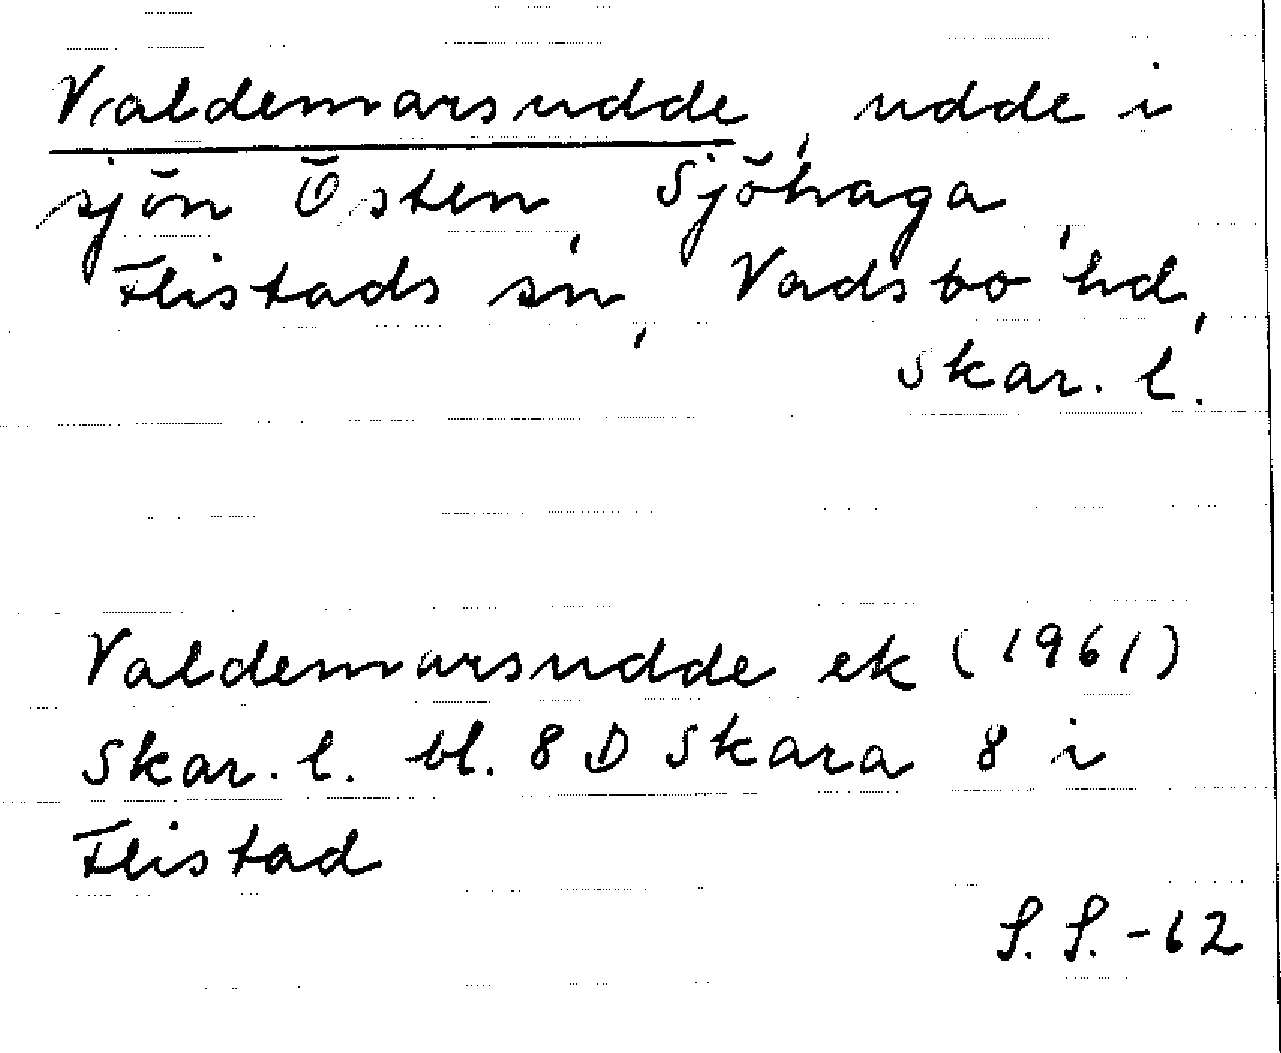 Valdemarsudde, udde i
sjön Östen, Sjöhaga,
Flistads sn, Vadsbo hd,
Skar. l.
Valdemarsudde ek (1961)
Skar. l. bl. 8 D Skara 8 i
Flistad
S. S. -62